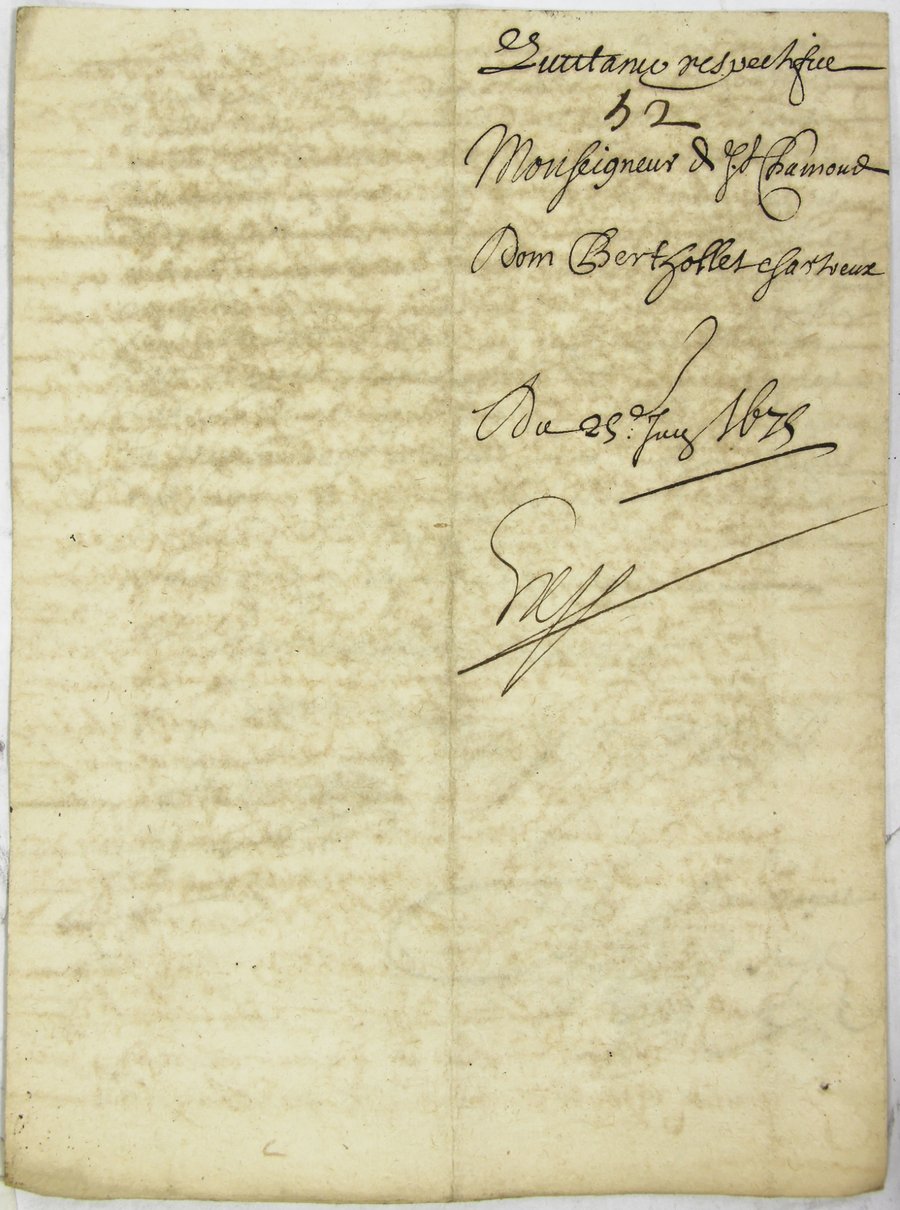 Quittance respectifve
52
Monseigneur de St Chamond
Dom Berthollet chartreux
Du 25e Juin 1675